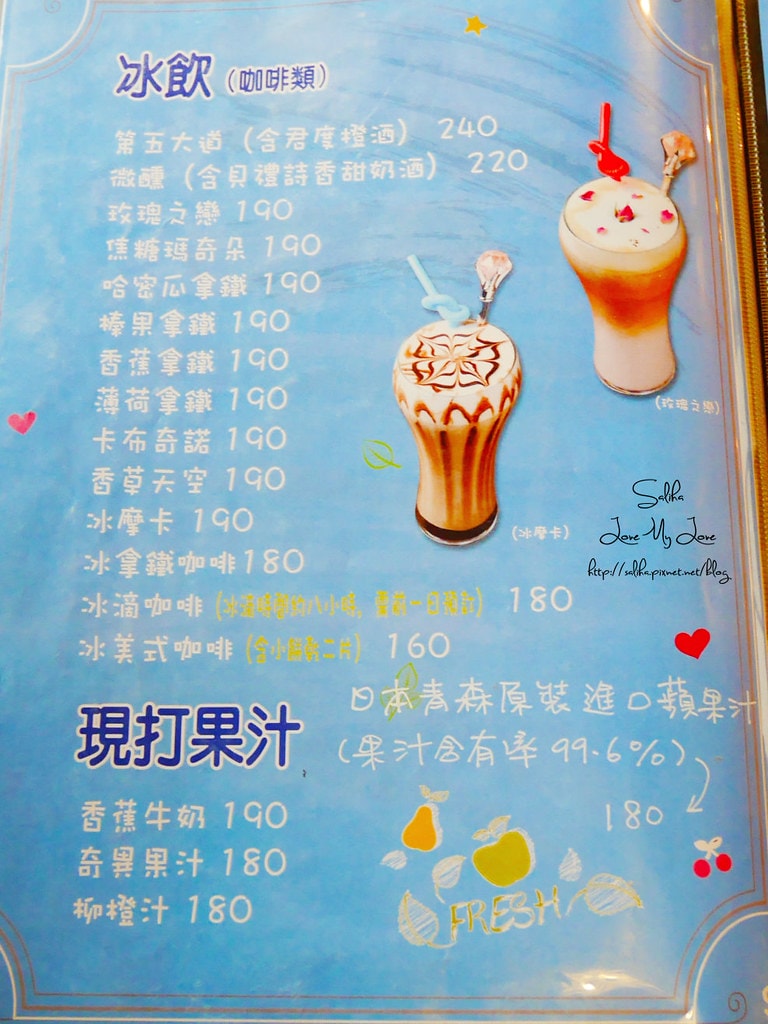 冰飲（咖啡類）
第五大道（含君度橙酒） 240
微醺（含貝禮詩香甜奶酒） 220
玫瑰之戀 190
焦糖瑪奇朵 190
哈密瓜拿鐵 190
榛果拿鐵 190
香蕉拿鐵 190
薄荷拿鐵 190
卡布奇諾 190
香草天空 190
冰摩卡 190
冰拿鐵咖啡180
冰滴咖啡（冰滴時間約八小時，需前一日預訂） 180
冰美式咖啡（含小餅乾二片） 160
（玫瑰之戀）
（冰摩卡）
Saliha
Love My Love
http://saliha.pixnet.net/blog
現打果汁
香蕉牛奶 190
奇異果汁 180
柳橙汁 180
日本青森原裝進口蘋果汁
（果汁含有率 99.6%）
180
FRESH